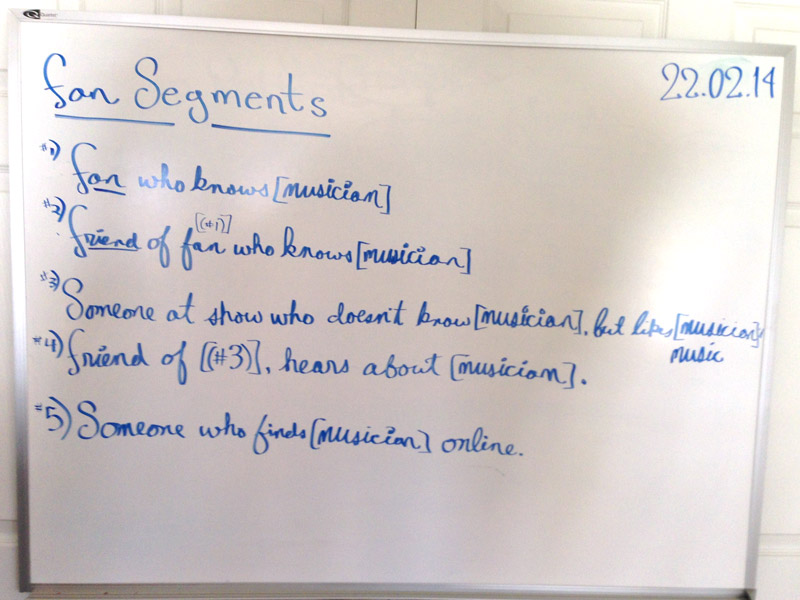 fan Segments
22.02.14
#1) fan who knows [musician]
[(#1)]
#2) friend of fan who knows [musician]
#3) Someone at show who doesn't know [musician], but likes [musician]'
music
#4) friend of [(#3)], hears about [musician].
#5) Someone who finds [musician] online.